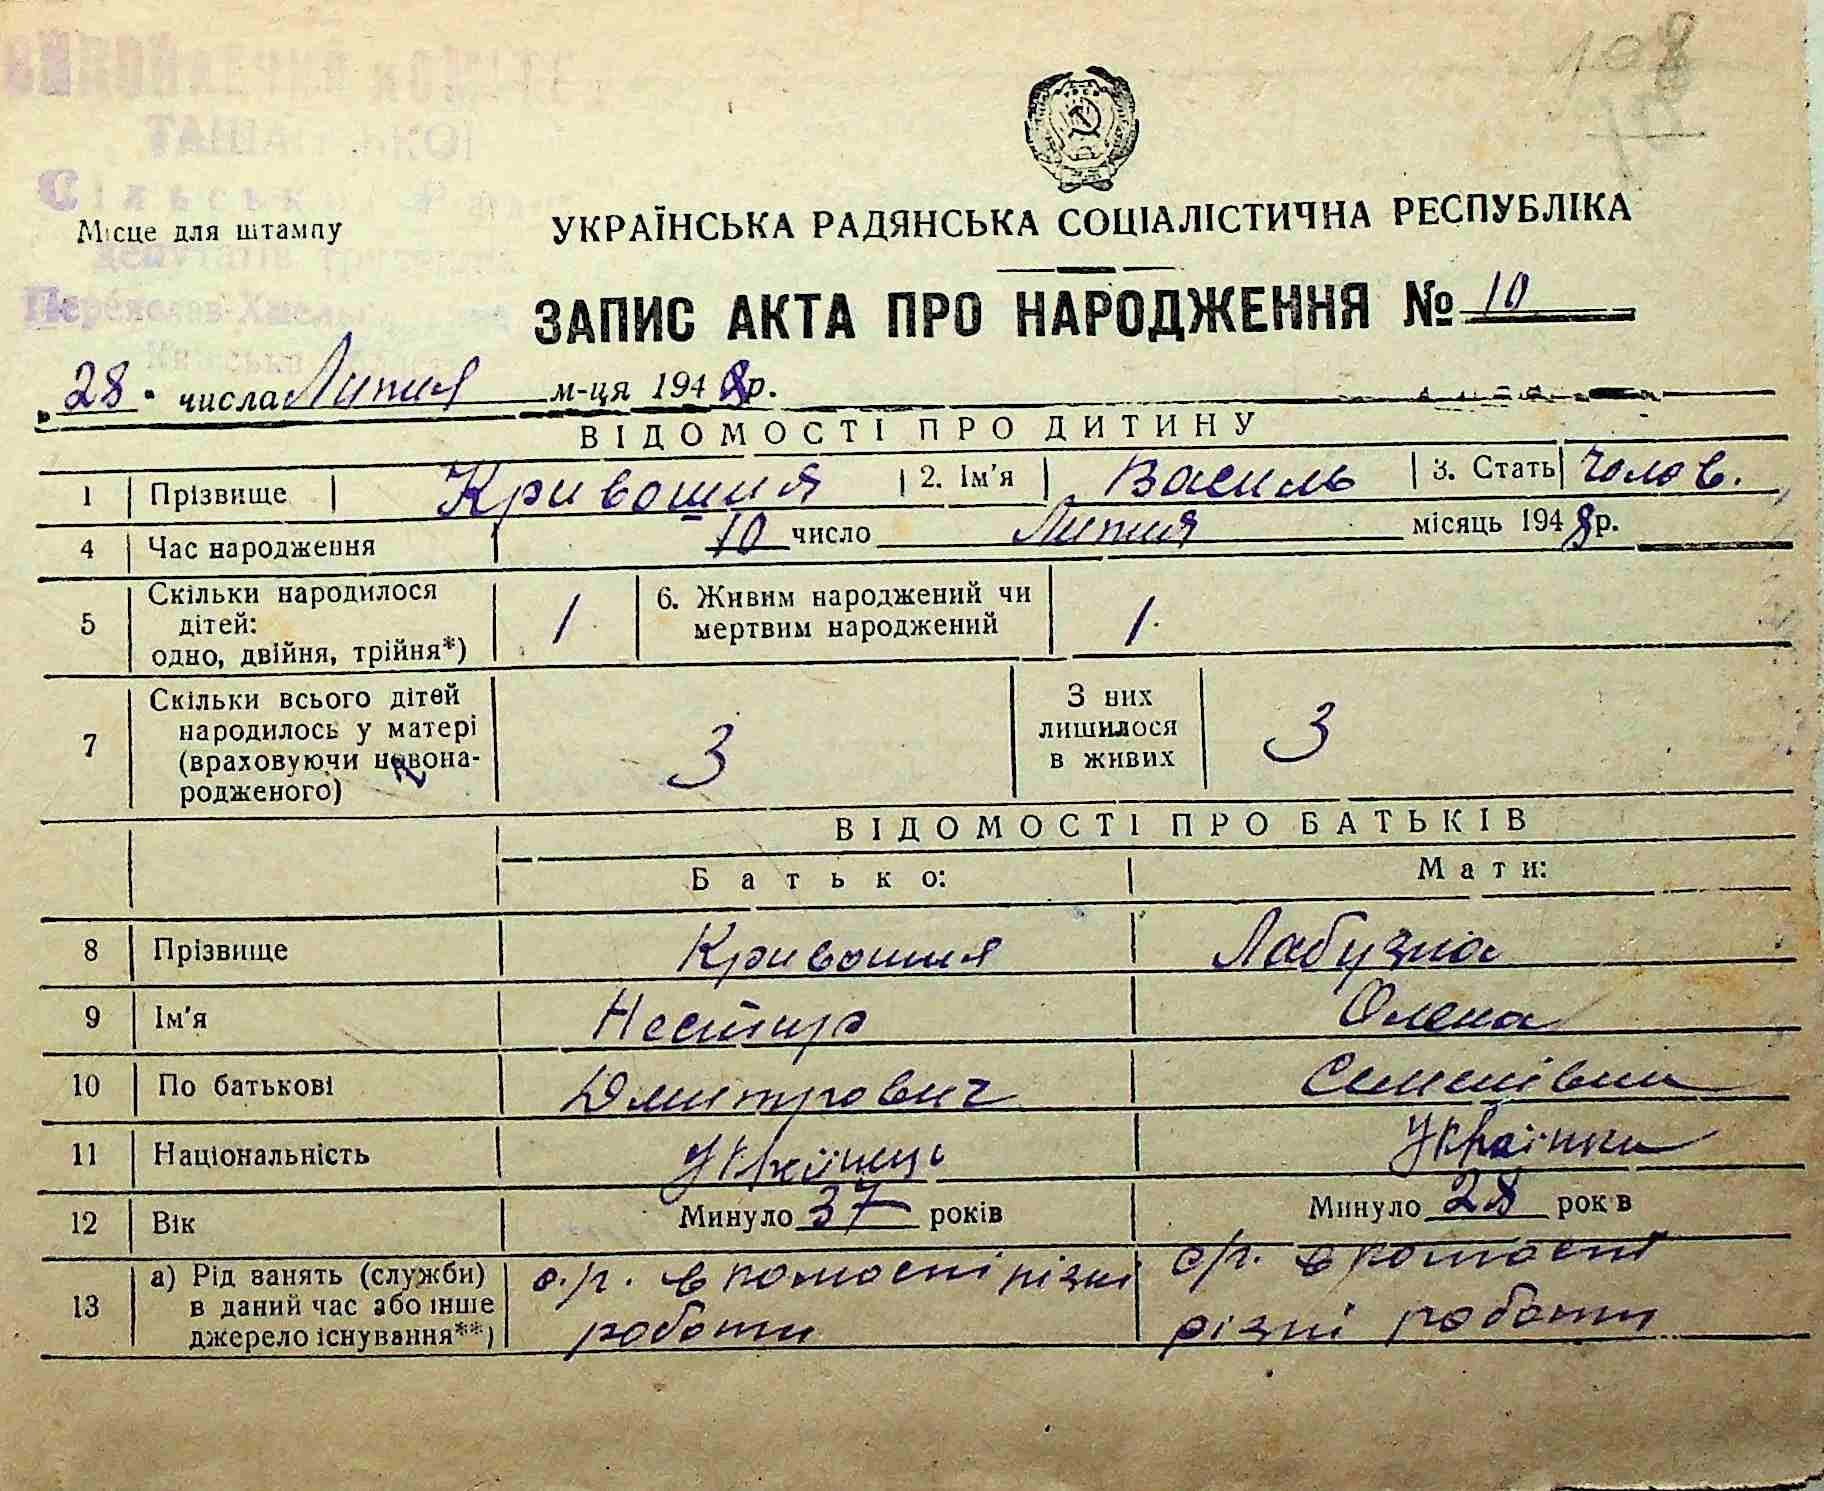 108
10
ТАШАНСЬКОЇ
Сільської Ради
депутатів трудящих
Місце для штампу
УКРАЇНСЬКА РАДЯНСЬКА СОЦІАЛІСТИЧНА РЕСПУБЛІКА
ЗАПИС АКТА ПРО НАРОДЖЕННЯ № 10
"28" числа Липня м-ця 1948 р.
ВІДОМОСТІ ПРО ДИТИНУ
1 Прізвище Кривошия 2. Ім'я Василь 3. Стать чолов.
4 Час народження 10 число Липня місяць 1948 р.
5 Скільки народилося дітей: одно, двійня, трійня*) 1 6. Живим народжений чи мертвим народжений 1.
7 Скільки всього дітей народилось у матері (враховуючи новона-родженого) 3 З них лишилося в живих 3
ВІДОМОСТІ ПРО БАТЬКІВ
Батько: Мати:
8 Прізвище Кривошия Лабузна
9 Ім'я Нестир Олена
10 По батькові Дмитрович Семенівна
11 Національність Українець Українка
12 Вік Минуло 37 років Минуло 28 рок в
13 а) Рід занять (служби) в даний час або інше джерело існування**) с.р. в колгоспі різні роботи с/г. в колгоспі різні роботи